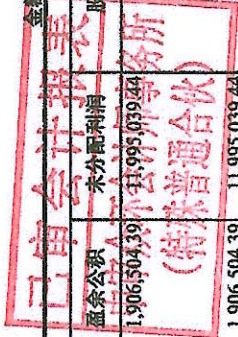 盈余公积 未分配利润
1,906,504.39 11,995,039.44
1,906,504.39 11,995,039.44
已审会计报表
(特殊普通合伙)